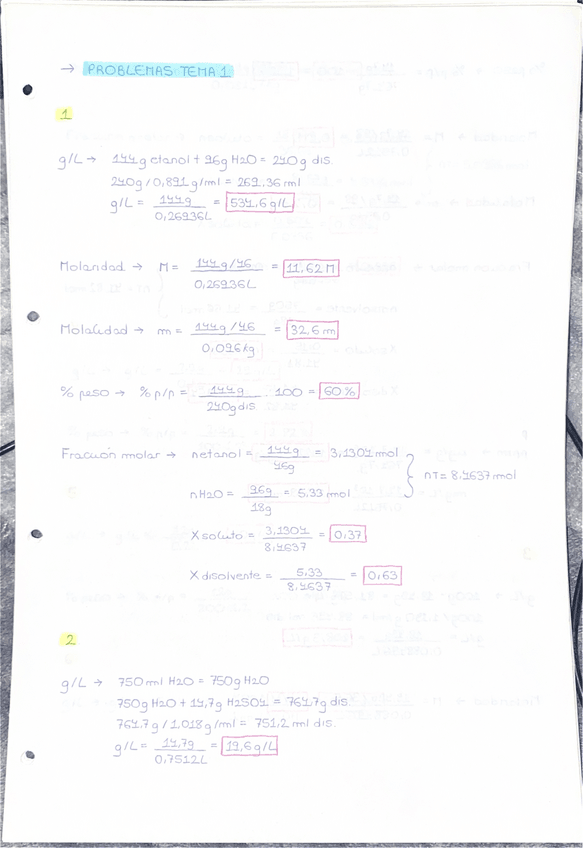 → PROBLEMAS TEMA 1
1
g/L → 144g etanol + 96g H2O = 240g dis.
240g / 0,891 g/ml = 269,36 ml
g/L = 144g / 0,26936L = 534,6 g/L
Molaridad → M = 144g/46 / 0,26936L = 11,62 M
Molalidad → m = 144g/46 / 0,096kg = 32,6 m
% peso → % p/p = 144g / 240g dis. · 100 = 60%
Fracción molar → netanol = 144g / 46g = 3,1304 mol
nT = 8,4637 mol
nH2O = 96g / 18g = 5.33 mol
X soluto = 3,1304 / 8,4637 = 0,37
X disolvente = 5.33 / 8,4637 = 0,63
2
g/L → 750 ml H2O = 750g H2O
750g H2O + 14,7g H2SO4 = 764,7g dis.
764.7g / 1,018g/ml = 751,2 ml dis.
g/L = 14,7g / 0,7512L = 19,6 g/L